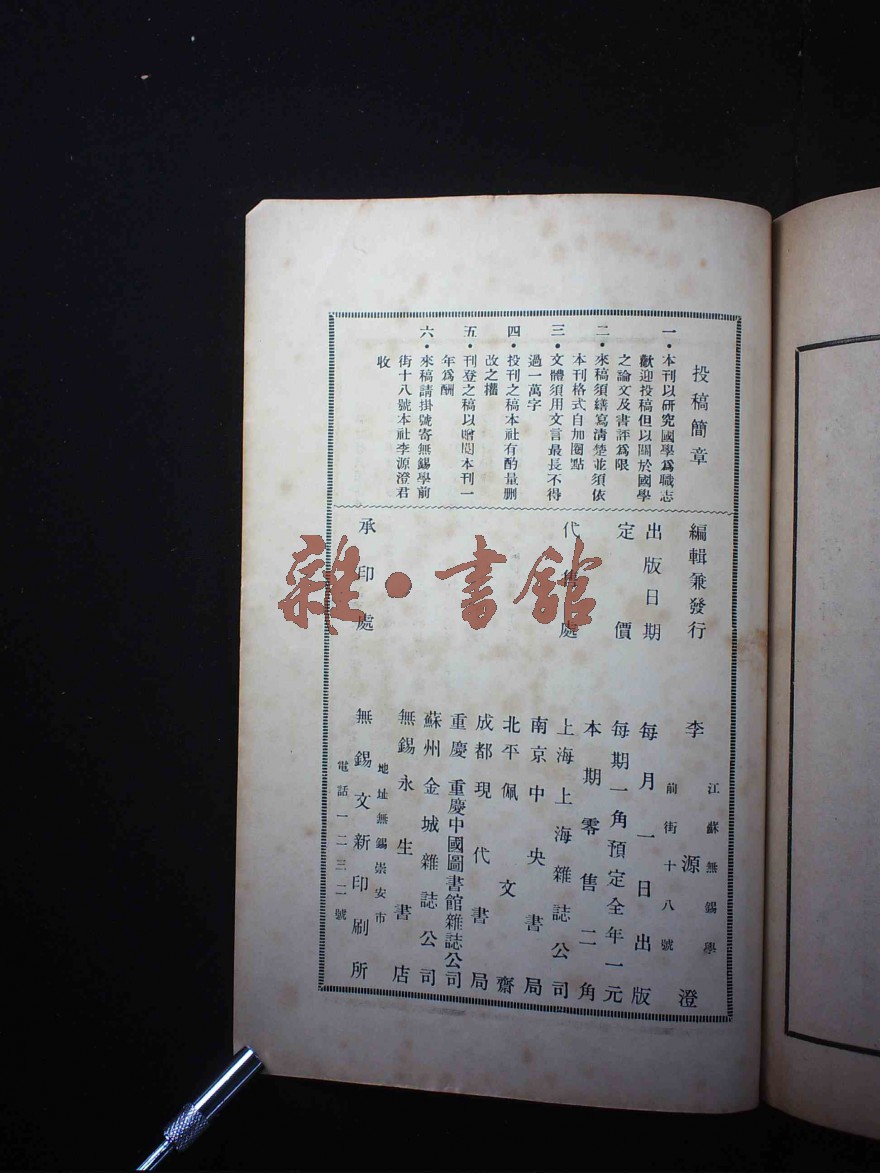 投稿簡章
一・本刊以研究國學爲職志
歡迎投稿但以關於國學
之論文及書評爲限
二・來稿須繕寫清楚並須依
本刊格式自加圈點
三・文體須用文言最長不得
過一萬字
四・投刊之稿本社有酌量删
改之權
五・刊登之稿以贈閱本刊一
年爲酬
六・來稿請掛號寄無錫學前
街十八號本社李源澄君
收
編輯兼發行 李源澄
江蘇無錫學
前街十八號
出版日期 每月一日出版
定價 每期一角預定全年一元
本期零售二角
代售處 上海上海雜誌公司
南京中央書局
北平佩文齋
成都現代書局
重慶重慶中國圖書館雜誌公司
蘇州金城雜誌公司
無錫永生書店
承印處 無錫文新印刷所
地址無錫崇安市
電話一二三二號
雜・書館